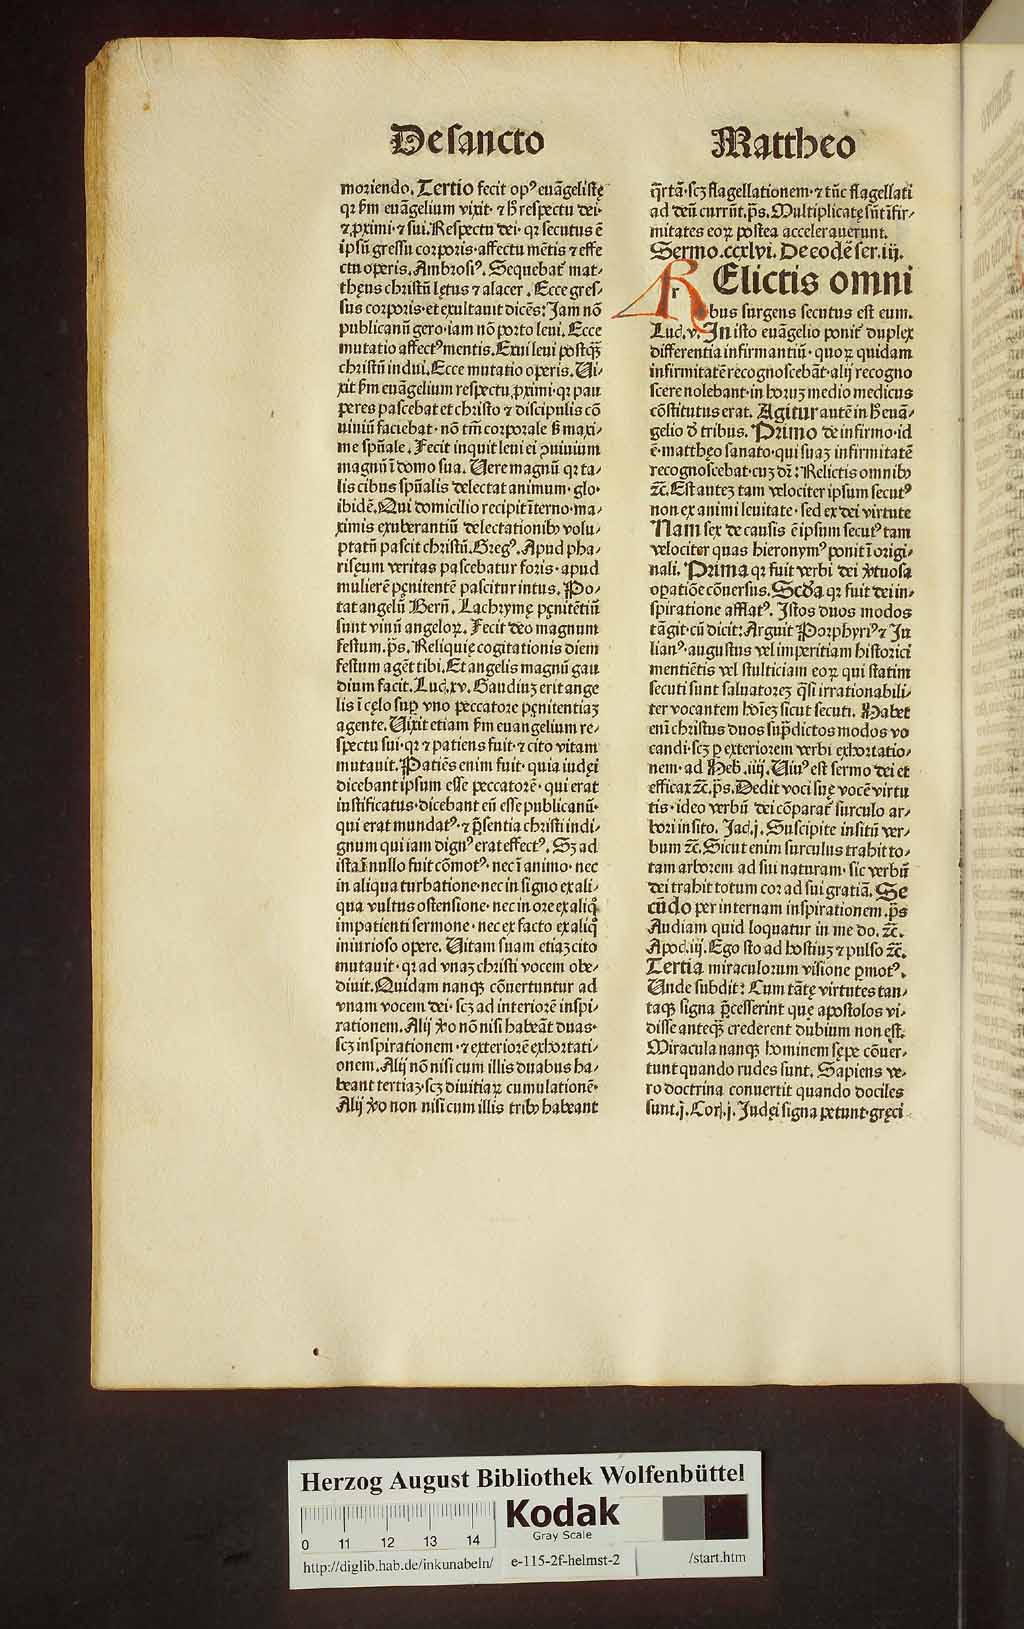 De sancto
moriendo. Tertio fecit opꝰ euãgelistę
qꝛ ẜm euãgelium vixit· ⁊ hͦ respectu dei·
⁊ ꝓximi· ⁊ sui. Respectu dei· qꝛ secutus ē
ipsũ gressu corporis· affectu mẽtis ⁊ effe
ctu operis. Ambrosiꝰ. Sequebat᷑ mat⸗
thęus christũ lętus ⁊ alacer. Ecce gres⸗
sus corporis· et exultauit dicẽs: Jam nõ
publicanũ gero· iam nõ porto leui. Ecce
mutatio affectꝰ mentis. Exui leui postqꝫ̃
christũ indui. Ecce mutatio operis. Ui⸗
xit ẜm euãgelium respectu ꝓximi· qꝛ pau
peres pascebat et christo ⁊ discipulis cõ
uiuiũ faciebat· nõ tm̃ corporale ẜ maxi⸗
me spũale. Fecit inquit leui ei ꝯuiuium
magnũ ĩ domo sua. Uere magnũ qꝛ ta⸗
lis cibus spũalis delectat animum· glo·
ibidẽ. Qui domicilio recipit ĩterno· ma⸗
ximis exuberantiũ delectationibꝰ volu⸗
ptatũ pascit christũ. Gregꝰ. Apud pha⸗
risęum veritas pascebatur foris· apud
mulierẽ pęnitentẽ pascitur intus. Po⸗
tat angelũ Berñ. Lachrymę pęnitẽtiũ
sunt vinũ angeloꝝ. Fecit deo magnum
festum. p̃s. Reliquię cogitationis diem
festum agẽt tibi. Et angelis magnũ gau
dium facit. Luc̃. xv. Gaudiuꝫ erit ange
lis ĩ cęlo sup̱ vno peccatore pęnitentiaꝫ
agente. Uixit etiam ẜm euangelium re⸗
spectu sui· qꝛ ⁊ patiens fuit· ⁊ cito vitam
mutauit. Patiẽs enim fuit· quia iudęi
dicebant ipsum esse peccatorẽ· qui erat
iustificatus· dicebant eũ esse publicanũ·
qui erat mundatꝰ· ⁊ p̃sentia christi indi⸗
gnum qui iam dignꝰ erat effectꝰ. Sꝫ ad
ista ĩ nullo fuit cõmotꝰ· nec ĩ animo· nec
in aliqua turbatione· nec in signo ex ali⸗
qua vultus ostensione· nec in ore ex aliqͦ
impatienti sermone· nec ex facto ex aliqͦ
iniurioso opere. Uitam suam etiaꝫ cito
mutauit· qꝛ ad vnaꝫ christi vocem obe⸗
diuit. Quidam nanqꝫ cõuertuntur ad
vnam vocem dei· scꝫ ad interiorẽ inspi⸗
rationem. Alij v̾o nõ nisi habeãt duas·
scꝫ inspirationem· ⁊ exteriorẽ exhortati⸗
onem. Alij nõ nisi cum illis duabus ha⸗
beant tertiaꝫ· scꝫ diuitiaꝝ cumulationẽ·
Alij v̾o non nisi cum illis tribꝰ habeant
Mattheo
q̃rtã· scꝫ flagellationem· ⁊ tũc flagellati
ad deũ currũt. p̃s. Multiplicatę sũt ĩfir⸗
mitates eoꝝ postea accelerauerunt.
Sermo. ccxlvi. De eodẽ ser. iij.
Relictis omni
bus surgens secutus est eum.
Luc̃. v. In isto euãgelio ponit᷑ duplex
differentia infirmantiũ· quoꝝ quidam
infirmitatẽ recognoscebãt· alij recogno
scere nolebant· in horuꝫ medio medicus
cõstitutus erat. Agitur autẽ in hͦ euã⸗
gelio d̾ tribus. Primo de infirmo· id
ē· matthęo sanato· qui suaꝫ infirmitatẽ
recognoscebat· cuꝫ dr̃: Relictis omnibꝰ
⁊c̃. Est auteꝫ tam velociter ipsum secutꝰ
non ex animi leuitate· sed ex dei virtute
Nam sex de causis ē ipsum secutꝰ tam
velociter quas hieronymꝰ ponit ĩ origi⸗
nali. Prima qꝛ fuit verbi dei v̾tuosa
oꝑatiõe cõuersus. Scd̃a qꝛ fuit dei in⸗
spiratione afflatꝰ. Istos duos modos
tãgit· cũ dicit: Arguit Porphyriꝰ ⁊ Ju
lianꝰ· augustus vel imperitiam historici
mentiẽtis vel stulticiam eoꝝ qui statim
secuti sunt saluatoreꝫ q̃si irrationabili⸗
ter vocantem hoĩeꝫ sicut secuti. Habet
enĩ christus duos sup̃dictos modos vo
candi· scꝫ ꝑ exteriorem verbi exhortatio⸗
nem· ad Heb. iiij. Uiuꝰ est sermo dei et
efficax ⁊c̃. p̃s. Dedit voci suę vocẽ virtu
tis· ideo verbũ dei cõparat᷑ surculo ar⸗
bori insito. Jac̃. j. Suscipite insitũ ver⸗
bum ⁊c̃. Sicut enim surculus trahit to⸗
tam arborem ad sui naturam· sic verbũ
dei trahit totum cor ad sui gratiã. Se
cũdo per internam inspirationem. p̃s
Audiam quid loquatur in me do. ⁊c̃.
Apoc̃. iij. Ego sto ad hostiuꝫ ⁊ pulso ⁊c̃.
Tertia miraculorum visione ꝑmotꝰ.
Unde subdit: Cum tãtę virtutes tan⸗
taqꝫ signa p̃cesserint quę apostolos vi⸗
disse anteqꝫ̃ crederent dubium non est.
Miracula nanqꝫ hominem sępe cõuer⸗
tunt quando rudes sunt. Sapiens ve⸗
ro doctrina conuertit quando dociles
sunt. j. Cor̃. j. Judęi signa petunt· gręci
Herzog August Bibliothek Wolfenbüttel
Kodak
Gray Scale
0 11 12 13 14
http://diglib.hab.de/inkunabeln/ e-115-2f-helmst-2 /start.htm